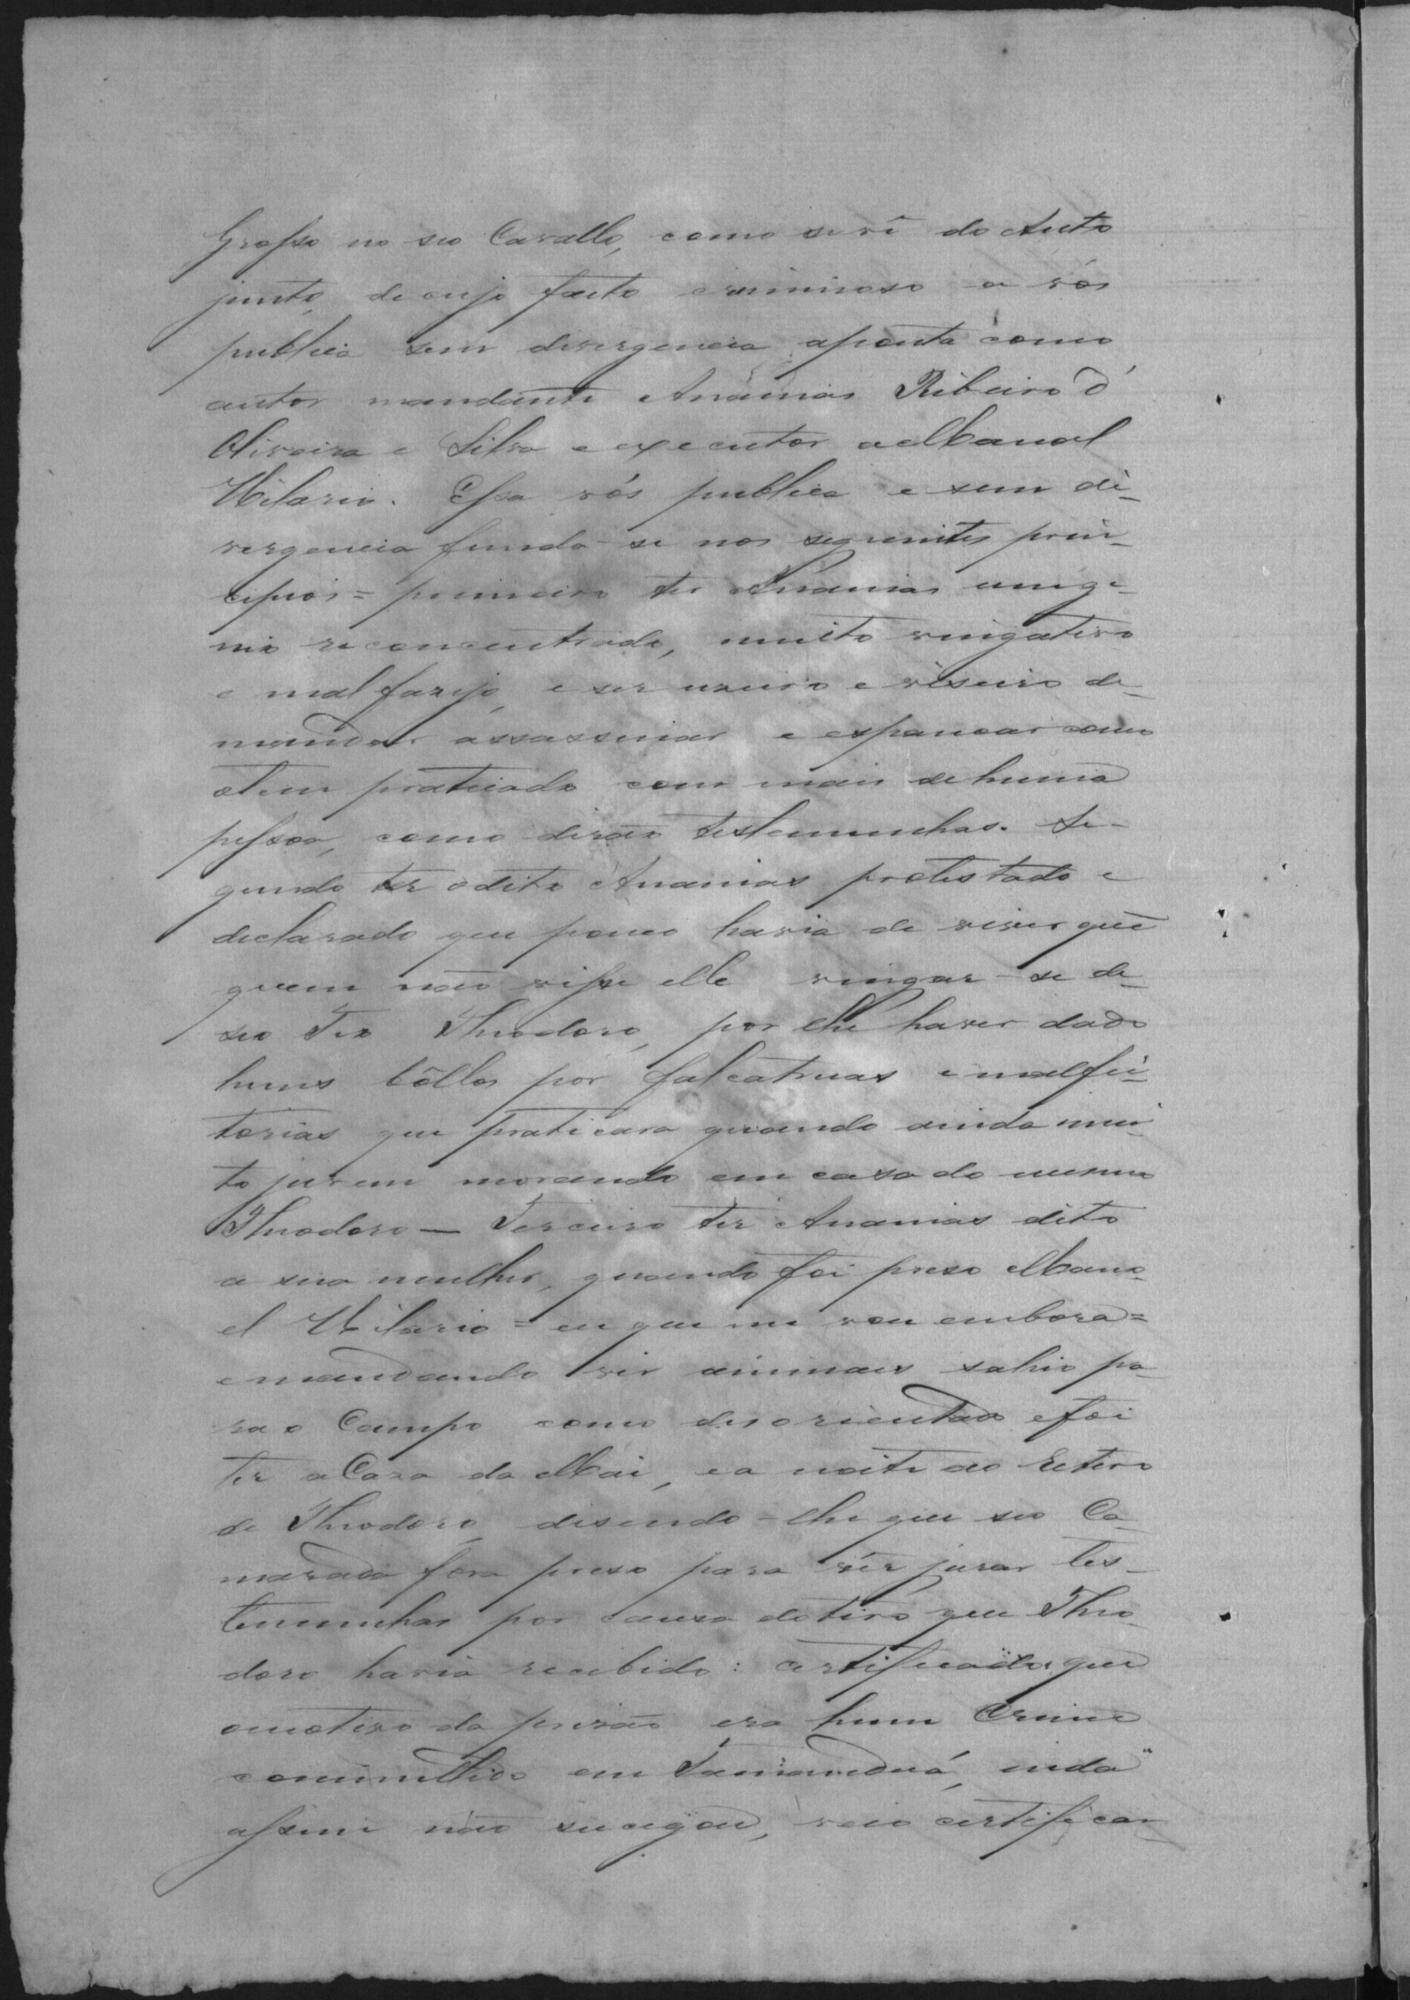 Grosso no seo Cavallo, como se vê do Auto
junto, de cujo facto criminoso a vós
publica sem divergencia aponta como
autor mandante Ananias Ribeiro d'
Oliveira e Silva e executor a Manoel
Hilario. Essa vós publica e sem di-
vergencia funda-se nos seguintes prin-
cipios = primeiro ter Ananias um ge-
nio reconcentrado, muito vingativo
e malfazejo, e ser useiro e viseiro de
mandar assassinar e espancar como
otem praticado com mais de huma
pessoa, como dirão testemunhas. Se-
gundo ter odito Ananias protestado e
declarado que pouco havia de viver que
quem não visse elle vingar-se de
seo Tio Theodoro, por lhe haver dado
huns bôllos por falcatruas e malfei-
torias que praticara quando ainda mui-
to jovem morando em casa do mesmo
Theodoro — Terceiro ter Ananias dito
a sua mulher, quando foi preso Mano-
el Hilario = eu que me vou embora =
e mandando vir animaes sahio pa-
ra o Campo como desorientado e foi
ter a Caza da Mãi, e a noite ao Retiro
de Theodoro, disendo-lhe que seo Ca-
marada fora preso para vêr jurar tes-
temunhas por causa do tiro que Theo
doro havia recebido: certificado que
omotivo da prizão era hum Crime
committido em Tamanduá, inda
assim não sucegou, veio certificar